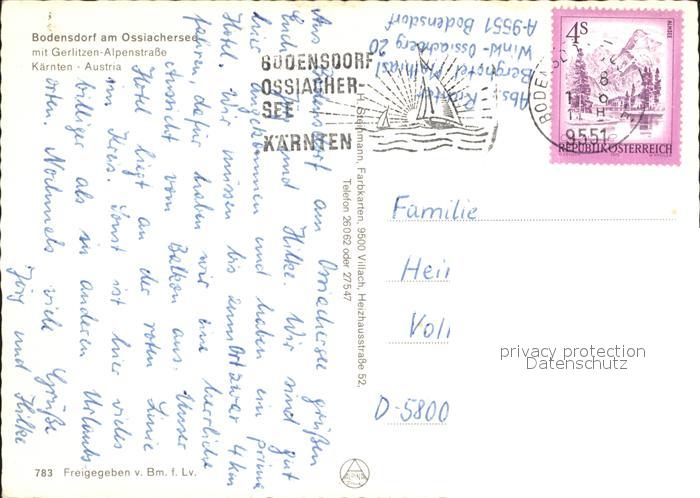 Bodensdorf am Ossiachersee
mit Gerlitzen-Alpenstraße
Kärnten · Austria
BODENSDORF
OSSIACHER-
SEE
KÄRNTEN
4S
ALMSEE
9551
REPUBLIK ÖSTERREICH
Abs.
Berghotel
Winkl-Ossiachberg 20
A-9551 Bodensdorf
Aus Bodensdorf am Ossiachersee grüßen
Euch Jörg und Hilke. Wir sind gut
hier angekommen und haben ein prima
Hotel. Wir müssen bis zum Ort zwar 4 km
fahren, dafür haben wir eine herrliche
Aussicht vom Balkon aus. Unser
Hotel liegt an der roten Linie
im Kreis. Sonst ist hier vieles
billiger als in anderen Urlaubs-
orten. Nochmals viele Grüße
Jörg und Hilke
H. Steinmann, Farbkarten, 9500 Villach, Heizhausstraße 52,
Telefon 26062 oder 27547
Familie
Hei
Vol
D-5800
privacy protection
Datenschutz
783 Freigegeben v. Bm. f. Lv.